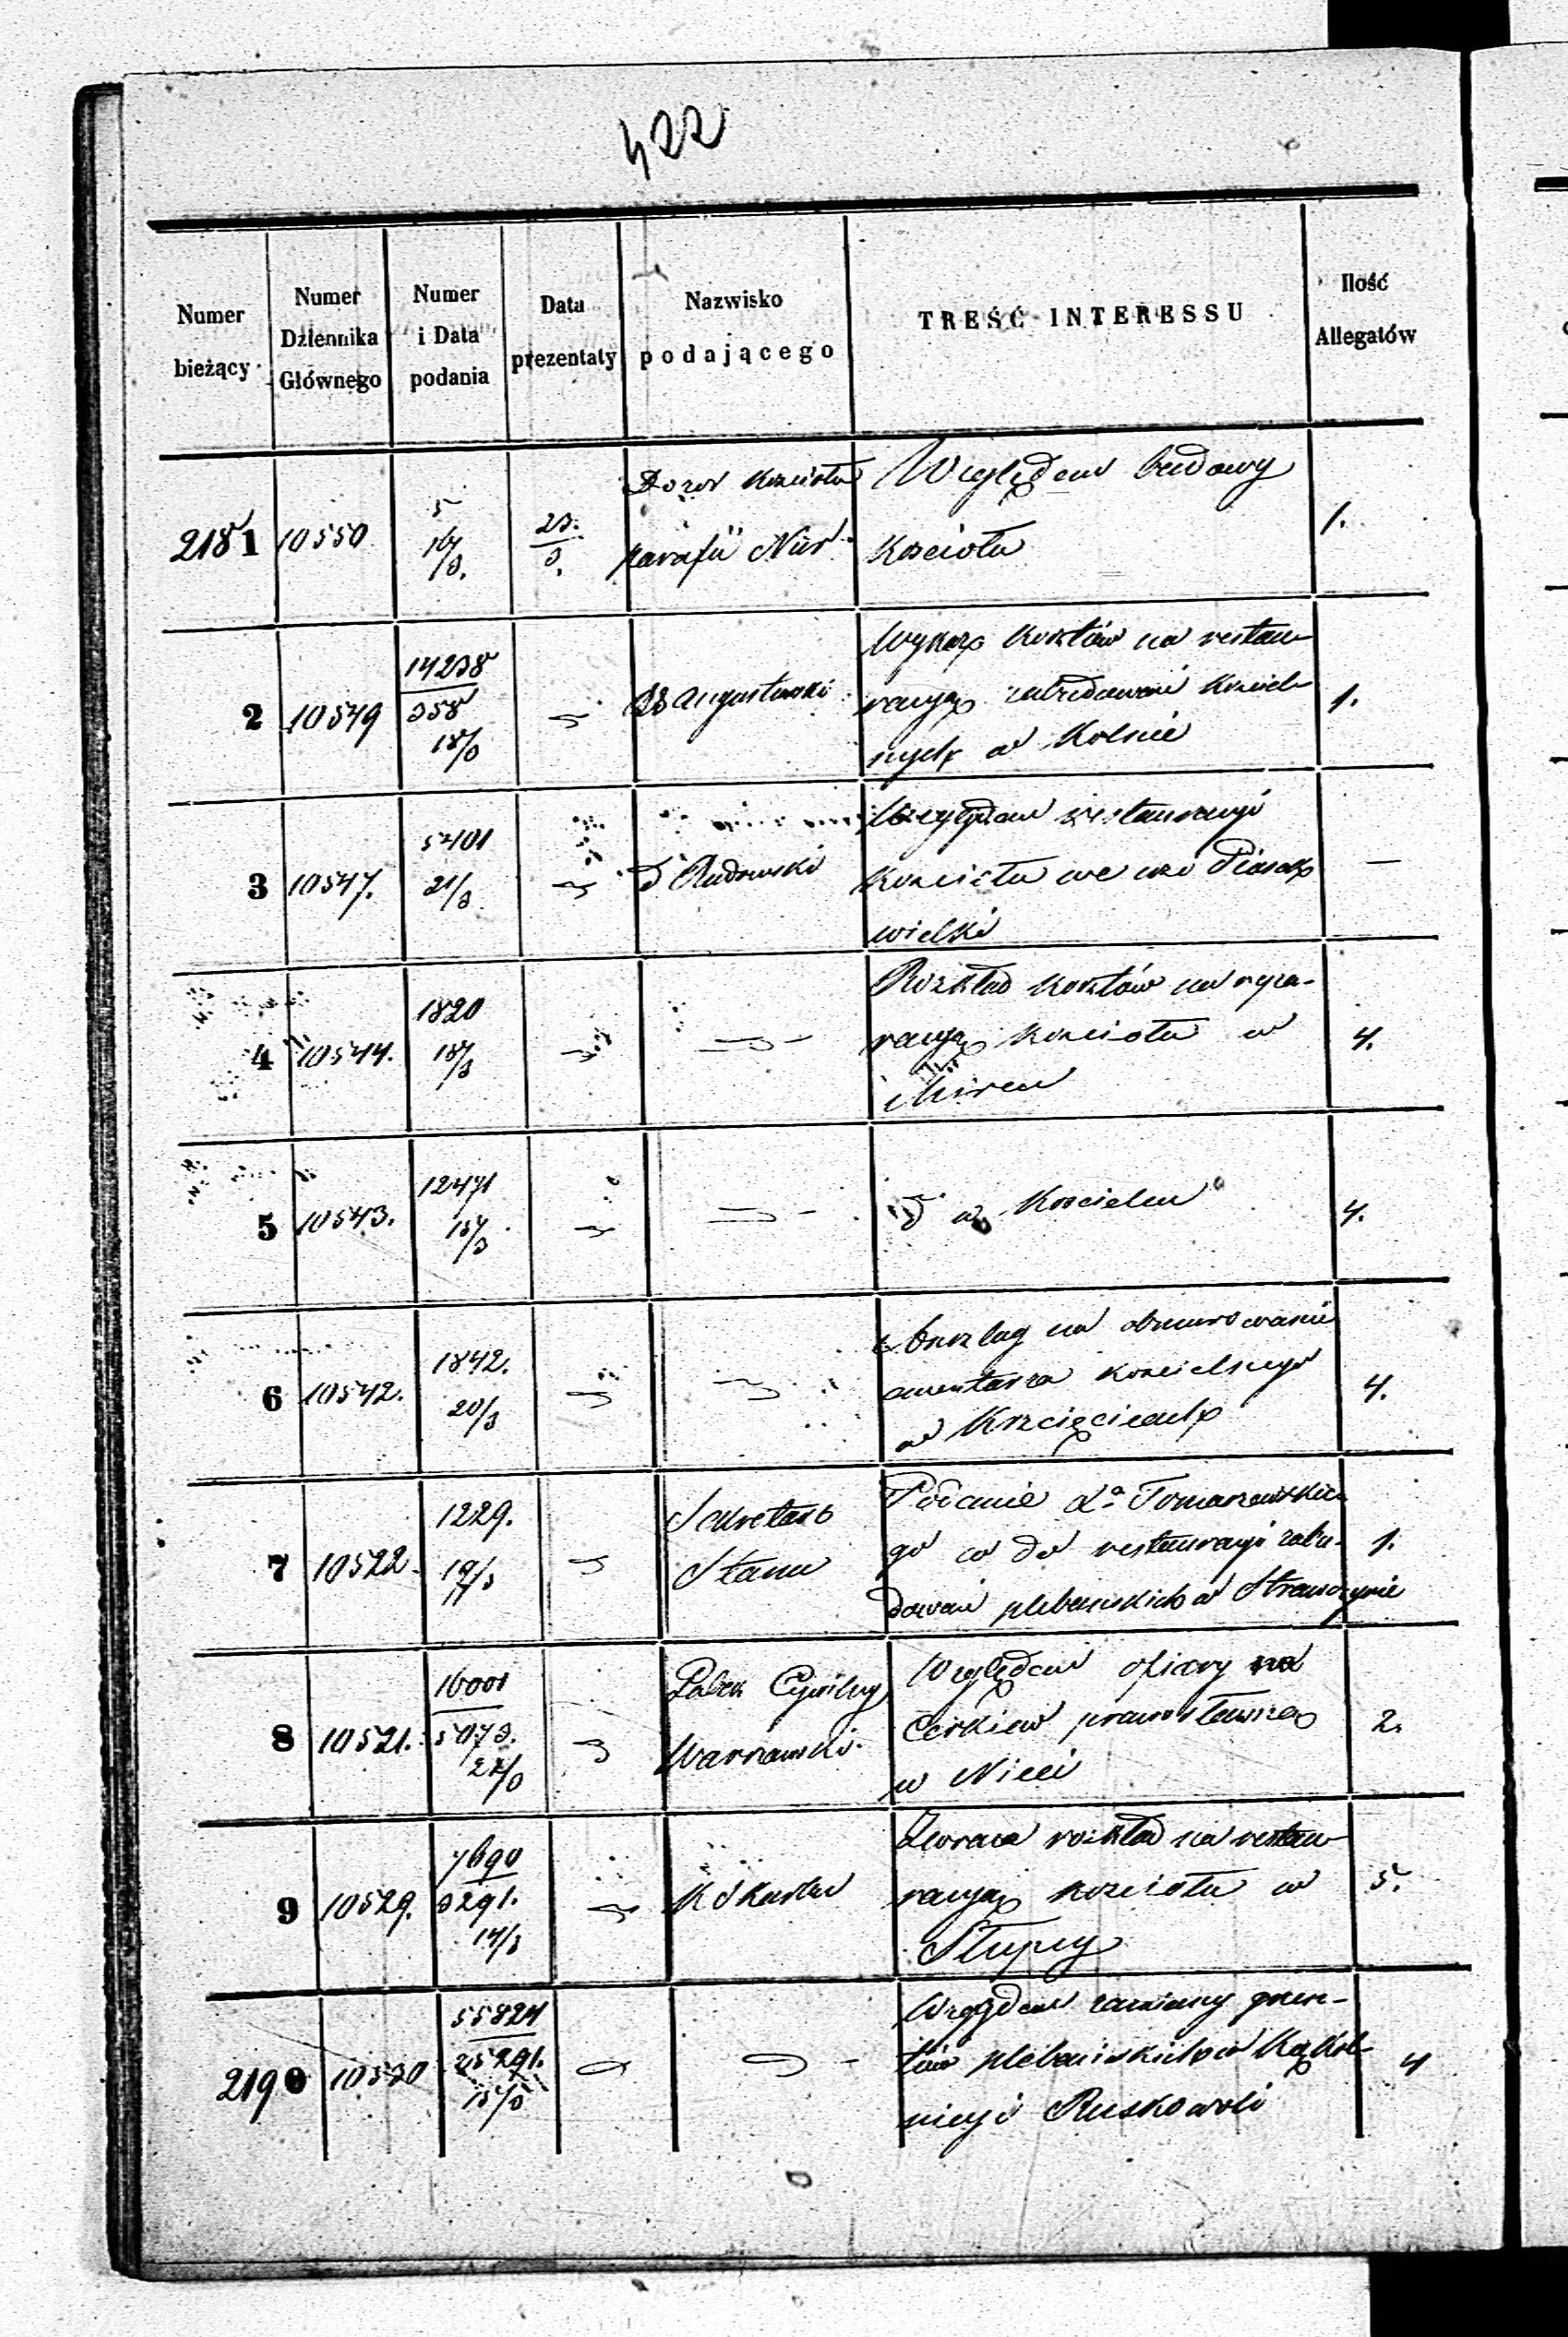 422
Numer bieżący
Numer Dziennika Głównego
Numer i Data podania
Data prezentaty
Nazwisko podającego
TREŚĆ INTERESSU
Ilość Allegatów
2181 10550 5 16/3. 23./3. Dozór kościoła Względem budowy 1.
parafii Nur kościoła
2 10549 14238/358 18/3 Augustowski Wykaz kosztów na restau- 1.
racyą zabudowań kościel-
nych w Kolnie
3 10547. 5401 21/3 Radomski Względem restauracyi —
kościoła we wsi Piasek
wielki
4 10544. 1820 18/3 Rozkład kosztów na repa- 4.
racyą kościoła w
5 10543. 12471 18/3 w Kościelcu 4.
6 10542. 1842. 20/3 na obmurowanie 4.
cmentarza kościelnego
w Krzcięcicach
7 10522 1229. 19/3 Sekretarz Podanie Tomaszewskie- 1.
Stanu go co do restauracyi zabu-
dowań plebańskich w Strawczynie
8 10521. 16001/5073. 22/3 Cywilny Względem ofiary na 2.
Warszawski Cerkiew prawosławną
w Nicei
9 10529. 7690/3291. 14/3 Zwraca rozkład na restau- 5.
racyą kościoła w
Słupcy
2190 10530 55824/25291. 15/3 Względem zamiany grun- 4
tów plebańskich w Kąkol-
nicy i Ruskowoli